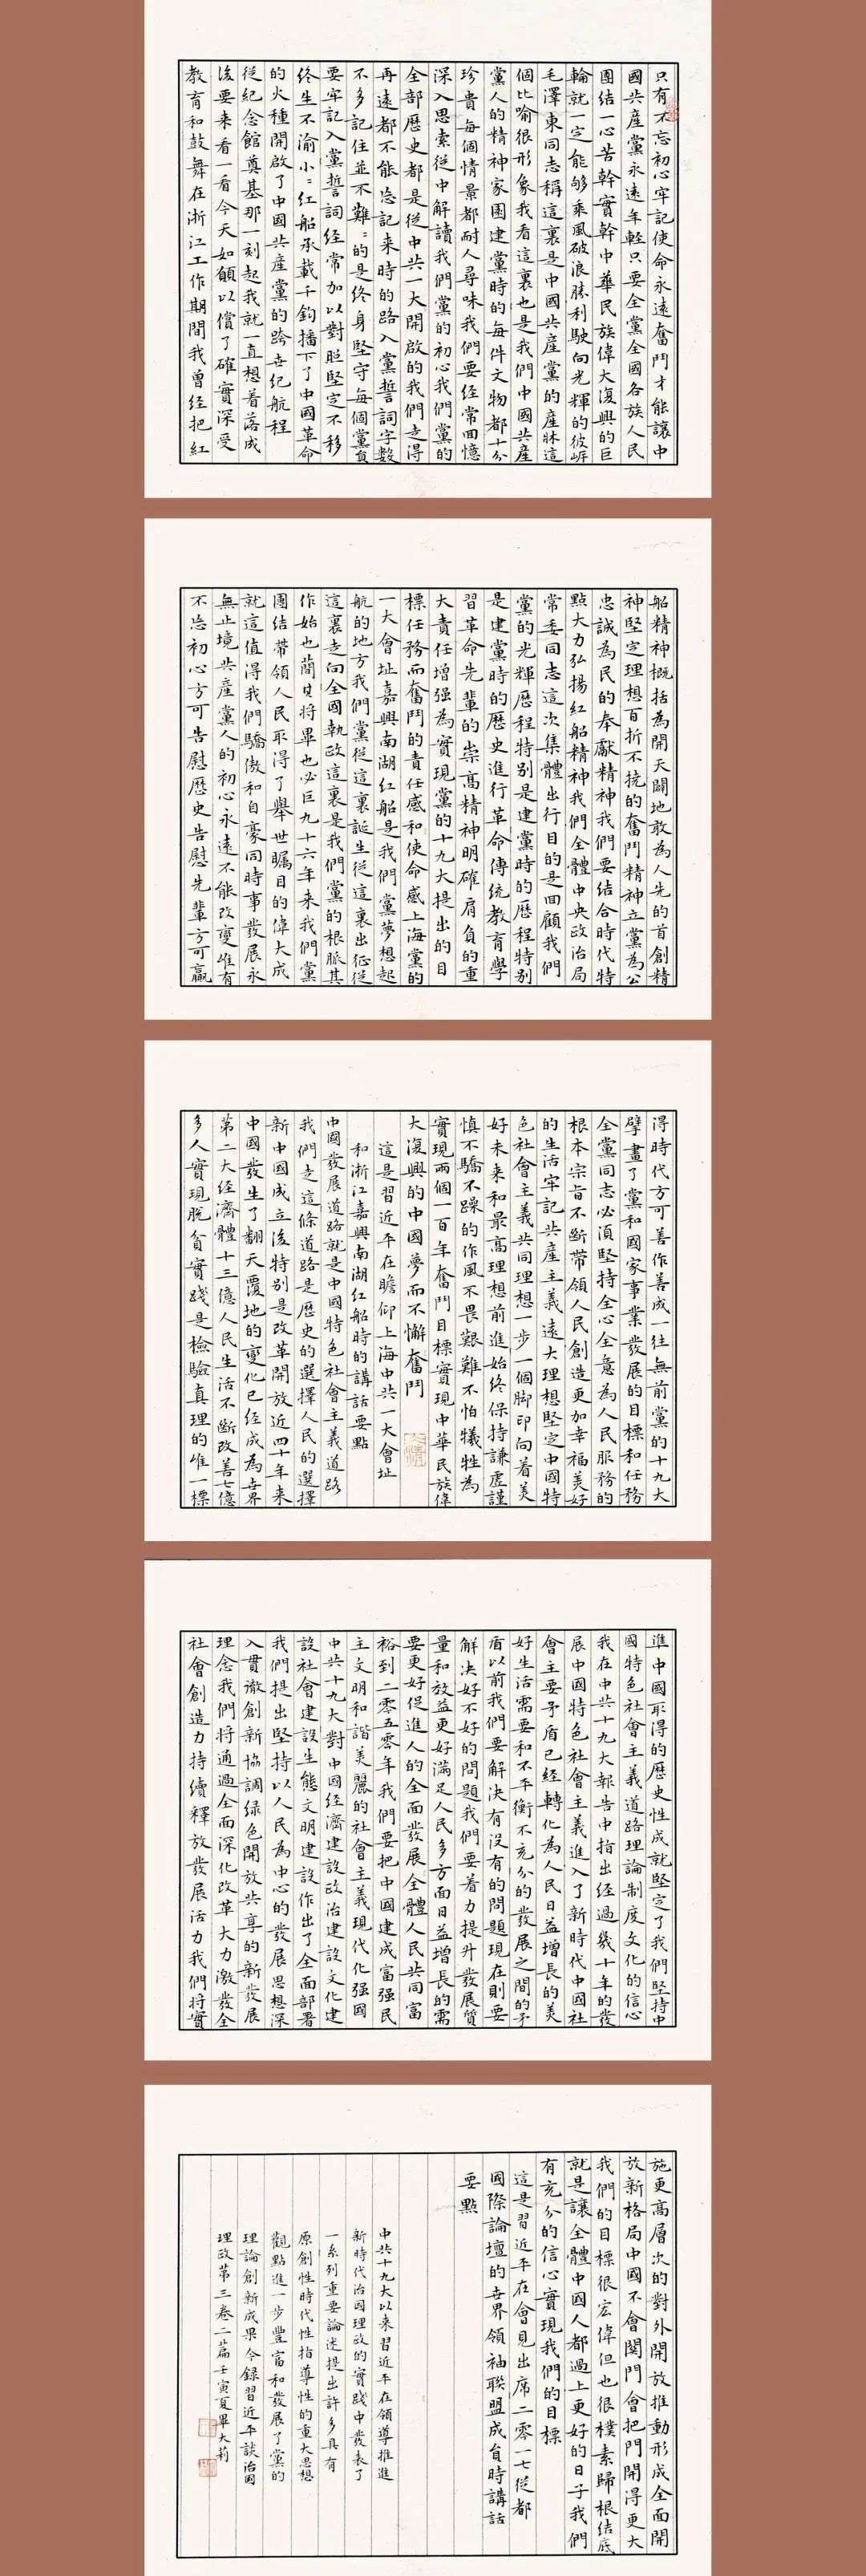 只有不忘初心牢記使命永遠奮鬥才能讓中
國共產黨永遠年輕只要全黨全國各族人民
團結一心苦幹實幹中華民族偉大復興的巨
輪就一定能够乘風破浪勝利駛向光輝的彼岸
毛澤東同志稱這裏是中國共產黨的產牀這
個比喻很形象我看這裏也是我們中國共產
黨人的精神家園建黨時的每件文物都十分
珍貴每個情景都耐人尋味我們要經常回憶
深入思索從中解讀我們黨的初心我們黨的
全部歷史都是從中共一大開啟的我們走得
再遠都不能忘記来時的路入黨誓詞字數
不多記住並不難〻的是終身堅守每個黨員
要牢記入黨誓詞經常加以對照堅定不移
終生不渝小〻紅船承載千鈞播下了中國革命
的火種開啟了中國共產黨的跨世紀航程
從紀念館奠基那一刻起我就一直想着落成
後要来看一看今天如願以償了確實深受
教育和鼓舞在浙江工作期間我曾經把紅
船精神概括為開天闢地敢為人先的首創精
神堅定理想百折不撓的奮鬥精神立黨為公
忠誠為民的奉獻精神我們要結合時代特
點大力弘揚紅船精神我們全體中央政治局
常委同志這次集體出行目的是回顧我們
黨的光輝歷程特别是建黨時的歷程特别
是建黨時的歷史進行革命傳統教育學
習革命先輩的崇高精神明確肩負的重
大責任增强為實現黨的十九大提出的目
標任務而奮鬥的責任感和使命感上海黨的
一大會址嘉興南湖紅船是我們黨夢想起
航的地方我們黨從這裏誕生從這裏出征從
這裏走向全國執政這裏是我們黨的根脈其
作始也簡其將畢也必巨九十六年来我們黨
團結帶領人民取得了舉世矚目的偉大成
就這值得我們驕傲和自豪同時事業發展永
無止境共產黨人的初心永遠不能改變唯有
不忘初心方可告慰歷史告慰先輩方可贏
得時代方可善作善成一往無前黨的十九大
擘畫了黨和國家事業發展的目標和任務
全黨同志必須堅持全心全意為人民服務的
根本宗旨不斷帶領人民創造更加幸福美好
的生活牢記共產主義遠大理想堅定中國特
色社會主義共同理想一步一個脚印向着美
好未来和最高理想前進始終保持謙虛謹
慎不驕不躁的作風不畏艱難不怕犧牲為
實現兩個一百年奮鬥目標實現中華民族偉
大復興的中國夢而不懈奮鬥
這是習近平在瞻仰上海中共一大會址
和浙江嘉興南湖紅船時的講話要點
中國發展道路就是中國特色社會主義道路
我們走這條道路是歷史的選擇人民的選擇
新中國成立後特别是改革開放近四十年来
中國發生了翻天覆地的變化已經成為世界
第二大經濟體十三億人民生活不斷改善七億
多人實現脫貧實踐是檢驗真理的唯一標
進中國取得的歷史性成就堅定了我們堅持中
國特色社會主義道路理論制度文化的信心
我在中共十九大報告中指出經過幾十年的發
展中國特色社會主義進入了新時代中國社
會主要矛盾已經轉化為人民日益增長的美
好生活需要和不平衡不充分的發展之間的矛
盾以前我們要解决有没有的問題現在則要
解决好不好的問題我們要着力提升發展質
量和效益更好滿足人民多方面日益增長的需
要更好促進人的全面發展全體人民共同富
裕到二零五零年我們要把中國建成富强民
主文明和諧美麗的社會主義現代化强國
中共十九大對中國經濟建設政治建設文化建
設社會建設生態文明建設作出了全面部署
我們提出堅持以人民為中心的發展思想深
入貫徹創新協調绿色開放共享的新發展
理念我們將通過全面深化改革大力激發全
社會創造力持續釋放發展活力我們將實
施更高層次的對外開放推動形成全面開
放新格局中國不會関門會把門開得更大
我們的目標很宏偉但也很樸素歸根结底
就是讓全體中國人都過上更好的日子我們
有充分的信心實現我們的目標
這是習近平在會見出席二零一七從都
國際論壇的世界領袖聯盟成員時講話
要點
中共十九大以来習近平在領導推進
新時代治国理政的實踐中發表了
一系列重要論述提出許多具有
原創性時代性指導性的重大思想
觀點進一步豐富和發展了黨的
理論創新成果今録習近平談治國
理政第三卷二篇壬寅夏畢大莉